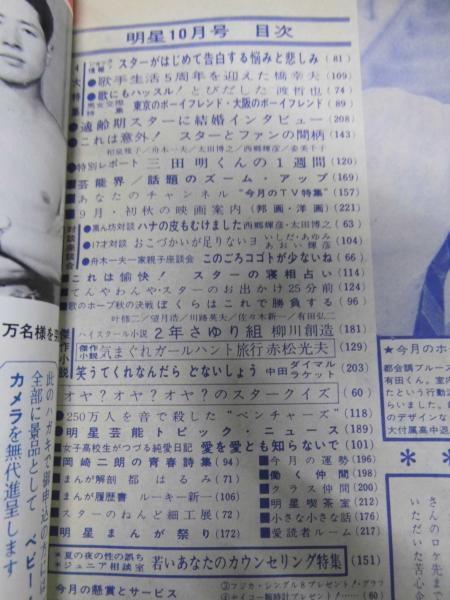 明星10月号 目次
スターがはじめて告白する悩みと悲しみ (81)
●歌手生活5周年を迎えた橋幸夫 (109)
●歌にもハッスル！とびだした渡哲也 (74)
東京のボーイフレンド・大阪のボーイフレンド (89)
●適齢期スターに結婚インタビュー (208)
●これは意外！ スターとファンの間柄 (143)
和泉雅子／舟木一夫／太田博之／西郷輝彦／姿美千子
●特別レポート 三田明くんの1週間 (120)
■芸能界／話題のズーム・アップ (169)
■あなたのチャンネル “今月のTV特集” (157)
■9月・初秋の映画案内 (邦画・洋画) (221)
対談座談会
●薫ん坊対談 ハナの皮もむけました 西郷輝彦・太田博之 (63)
●17才対談 おこづかいが足りないヨ いしだ・あゆみ あおい輝彦 (104)
●舟木一夫一家親子座談会 このごろコゴトが少ないね (66)
■これは愉快！ スターの寝相占い (114)
■てんやわんや・スターのお出かけ25分前 (124)
■歌のホープ秋の決戦 ぼくらはこれで勝負する (96)
叶修二／望月浩／川路英夫／佐々木新一／有田弘二
傑作小説
ハイスクール小説 2年さゆり組 柳川創造 (181)
傑作小説 気まぐれガールハント旅行 赤松光夫 (129)
笑うてくれなんだら どないしょう 中田ダイマル ラケット (203)
オヤ？オヤ？オヤ？のスタークイズ (60)
■250万人を音で殺した“ベンチャーズ” (118)
■明星芸能トピック・ニュース (189)
■女子高校生がつづる純愛日記 愛を愛とも知らないで (101)
■岡崎二朗の青春詩集 (94)
■まんが解剖 都はるみ (71)
■まんが履歴書 ルーキー新一 (106)
■スターのねんど細工展 (72)
■明星まんが祭り (172)
■今月の運勢 (196)
■働く仲間 (198)
■クラス仲間 (200)
■明星喫茶室 (212)
■小さな小さな話 (176)
■愛読者ルーム (217)
★夏の夜の性の誘ち
★ジュニア相談室 若いあなたのカウンセリング特集 (151)
今月の懸賞とサービス
万名様を
此のハガキで御申込の方
全部に景品として ベビー
カメラを無代進呈します
★今月のホー
都会調ブルース
有田くん。室内
たという行動派
らいました。
のデザインな
大付属高中退
＊ ＊
さんのロケ先まで
いただいた